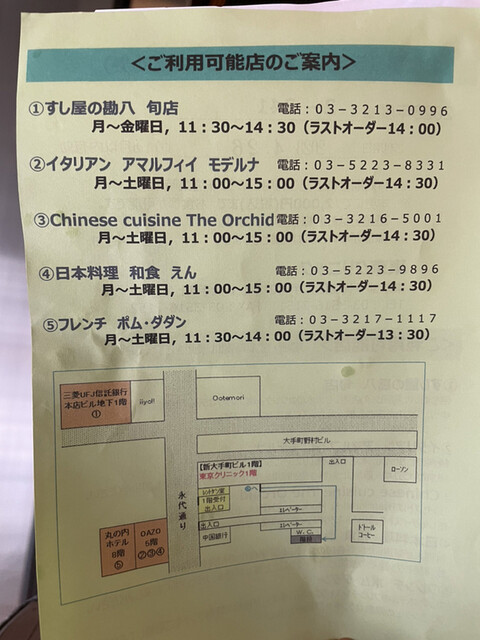 <ご利用可能店のご案内>
①すし屋の勘八 旬店 電話：03-3213-0996
月～金曜日，11：30～14：30（ラストオーダー14：00）
②イタリアン アマルフィイ モデルナ 電話：03-5223-8331
月～土曜日，11：00～15：00（ラストオーダー14：30）
③Chinese cuisine The Orchid 電話：03-3216-5001
月～土曜日，11：00～15：00（ラストオーダー14：30）
④日本料理 和食 えん 電話：03-5223-9896
月～土曜日，11：00～15：00（ラストオーダー14：30）
⑤フレンチ ポム・ダダン 電話：03-3217-1117
月～土曜日，11：30～14：00（ラストオーダー13：30）
三菱UFJ信託銀行
本店ビル地下1階
①
iiyo!!
Ootemori
大手町野村ビル
永代通り
【新大手町ビル1階】
東京クリニック1階
出入口
ローソン
レントゲン室
1階受付
出入口
エレベーター
出入口
エレベーター
中国銀行
W.C.
階段
ドトール
コーヒー
丸の内
ホテル
8階
⑤
OAZO
5階
②③④